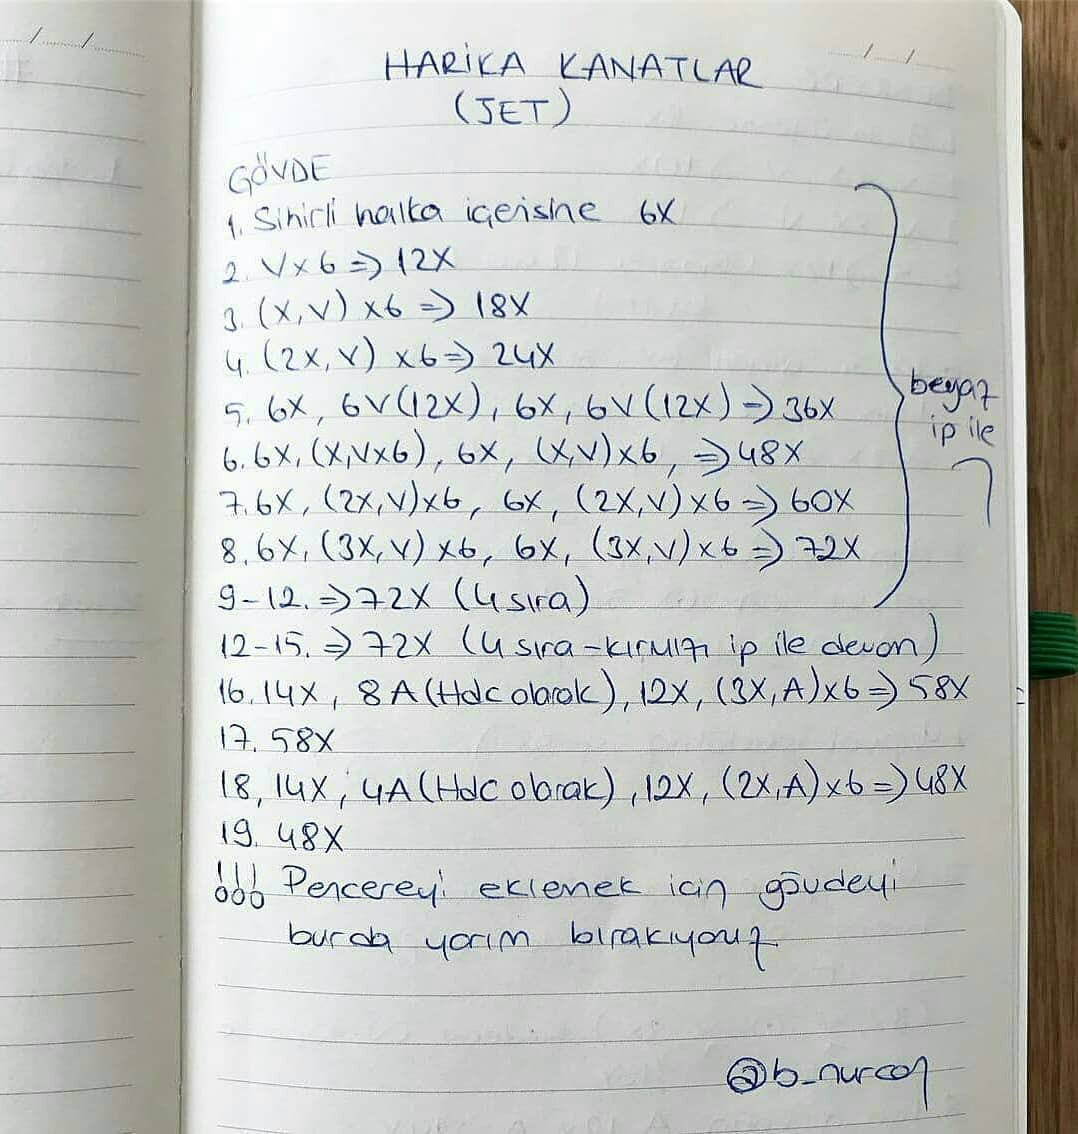 HARİKA KANATLAR
(JET)
GÖVDE
1. Sihirli halka içerisine 6X
2. V×6 => 12X
3. (X,V) ×6 => 18X
4. (2X,V) ×6 => 24X
5. 6X, 6V(12X), 6X, 6V(12X) => 36X
6. 6X, (X,V×6), 6X, (X,V)×6, => 48X
7. 6X, (2X,V)×6, 6X, (2X,V)×6 => 60X
8. 6X, (3X,V)×6, 6X, (3X,V)×6 => 72X
9-12. => 72X (4 sıra)
beyaz
ip ile
12-15. => 72X (4 sıra-kırmızı ip ile devam)
16. 14X, 8A (Hdc olarak), 12X, (3X,A)×6 => 58X
17. 58X
18. 14X, 4A (Hdc olarak), 12X, (2X,A)×6 => 48X
19. 48X
!!! Pencereyi eklemek için gövdeyi
burda yarım bırakıyoruz
@b_nurcan